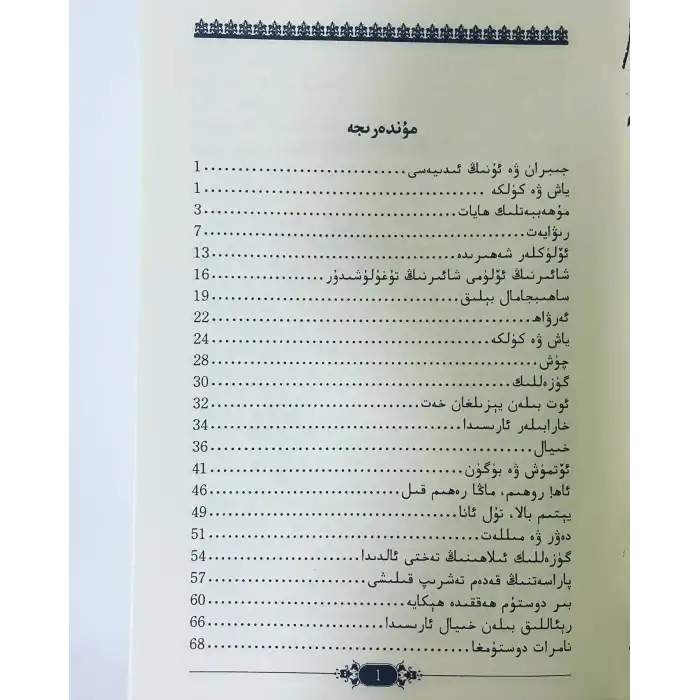 مۇندەرىجە
جىبران ۋە ئۇنىڭ ئىدىيەسى..............................1
ياش ۋە كۈلكە ........................................1
مۇھەببەتلىك ھايات....................................3
رىۋايەت..............................................7
ئۆلۈكلەر شەھىرىدە....................................13
شائىرنىڭ ئۆلۈمى شائىرنىڭ تۇغۇلۇشىدۇر................16
ساھىبجامال بېلىق.....................................19
ئەرۋاھ...............................................22
ياش ۋە كۈلكە.........................................24
چۈش..................................................28
گۈزەللىك.............................................30
ئوت بىلەن يېزىلغان خەت...............................32
خارابىلەر ئارىسىدا...................................34
خىيال................................................36
ئۆتمۈش ۋە بۈگۈن......................................41
ئاھ! روھىم، ماڭا رەھىم قىل...........................46
يېتىم بالا، تۇل ئانا.................................49
دەۋر ۋە مىللەت.......................................51
گۈزەللىك ئىلاھىنىڭ تەختى ئالدىدا.....................54
پاراسەتنىڭ قەدەم تەشرىپ قىلىشى.......................57
بىر دوستۇم ھەققىدە ھېكايە............................60
رېئاللىق بىلەن خىيال ئارىسىدا........................66
نامرات دوستۇمغا......................................68
1